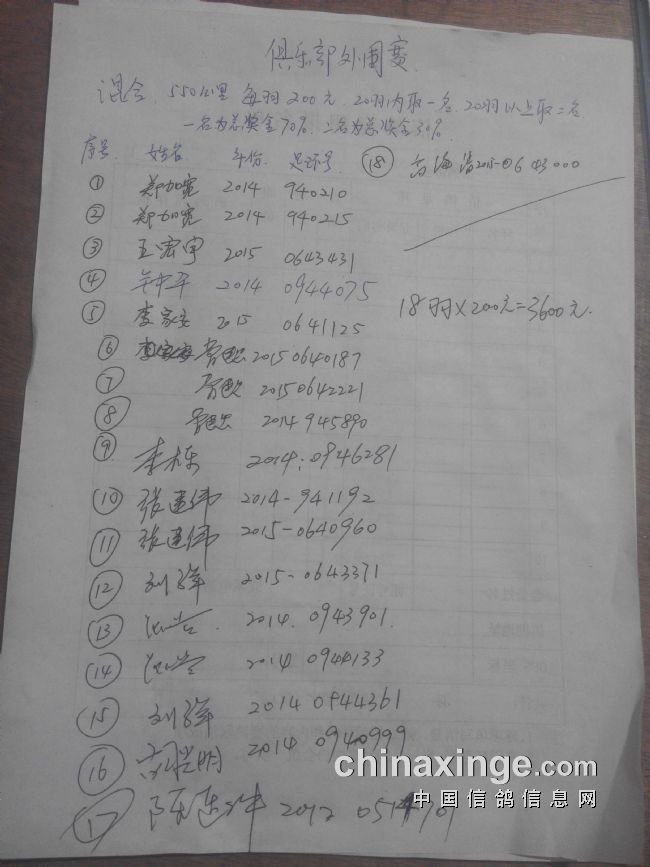 俱乐部外围赛
混合 550公里 每羽200元 20羽内取一名 20羽以上取二名
一名为总奖金70% 二名为总奖金30%
序号 姓名 年份 足环号
① 郑加宽 2014 940210
② 郑加宽 2014 940215
③ 王宏宇 2015 0643431
④ 2014 0944075
⑤ 李家安 2015 0641125
⑥ 2015 0640187
⑦ 2015 0642221
⑧ 2014 945890
⑨ 李栋 2014. 0946281
⑩ 张建伟 2014-941192
⑪ 张建伟 2015-0640960
⑫ 刘泽 2015-0643371
⑬ 2014. 0943901.
⑭ 2014 0944133
⑮ 刘泽 2014 0944361
⑯ 2014 0940999
⑰ 2012
⑱ 2015-0643000
18羽×200元=3600元.
chinaxinge.com
中国信鸽信息网